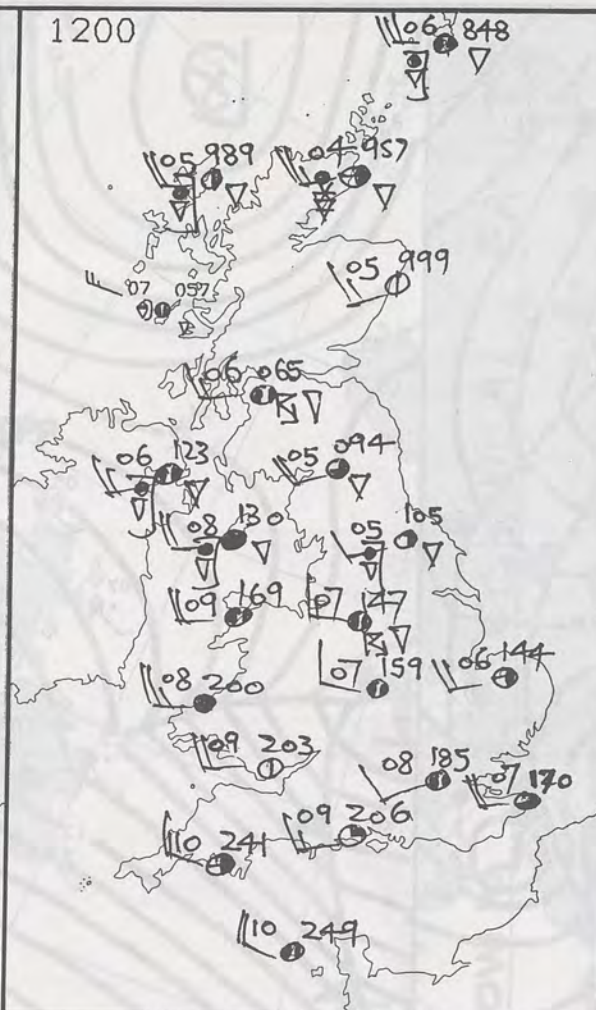 1200
06 848
05 989
04 957
05 999
07 057
06 065
06 123
05 094
08 130
05 105
09 169
07 147
07 159
06 144
08 200
09 203
08 185
07 170
09 206
10 241
10 249